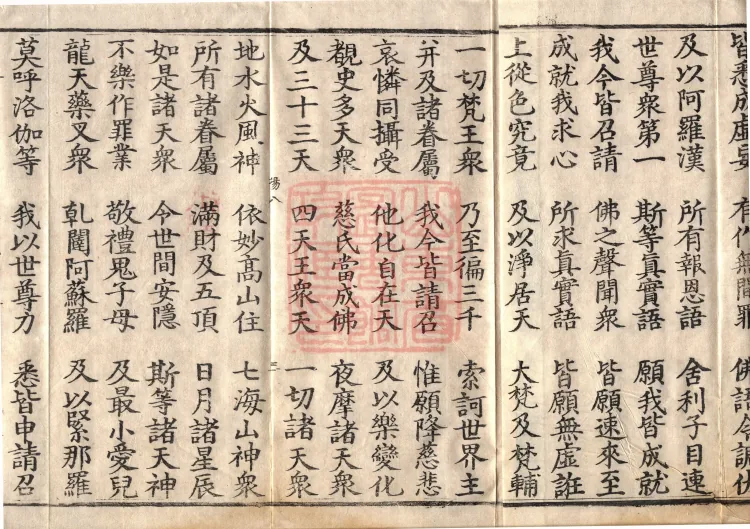 皆悉成虛妄 有作無間罪 佛語令調伏
及以阿羅漢 所有報恩語 舍利子目連
世尊衆第一 斯等真實語 願我皆成就
我今皆召請 佛之聲聞衆 皆願速來至
成就我求心 所求真實語 皆願無虛誑
上從色究竟 及以淨居天 大梵及梵輔
一切梵王衆 乃至徧三千 索訶世界主
并及諸眷屬 我今皆請召 惟願降慈悲
哀憐同攝受 他化自在天 及以樂變化
覩史多天衆 慈氏當成佛 夜摩諸天衆
及三十三天 四天王衆天 一切諸天衆
八 三
地水火風神 依妙高山住 七海山神衆
所有諸眷屬 滿財及五頂 日月諸星辰
如是諸天衆 令世間安隱 斯等諸天神
不樂作罪業 敬禮鬼子母 及最小愛兒
龍天藥叉衆 乹闥阿蘇羅 及以緊那羅
莫呼洛伽等 我以世尊力 悉皆申請召